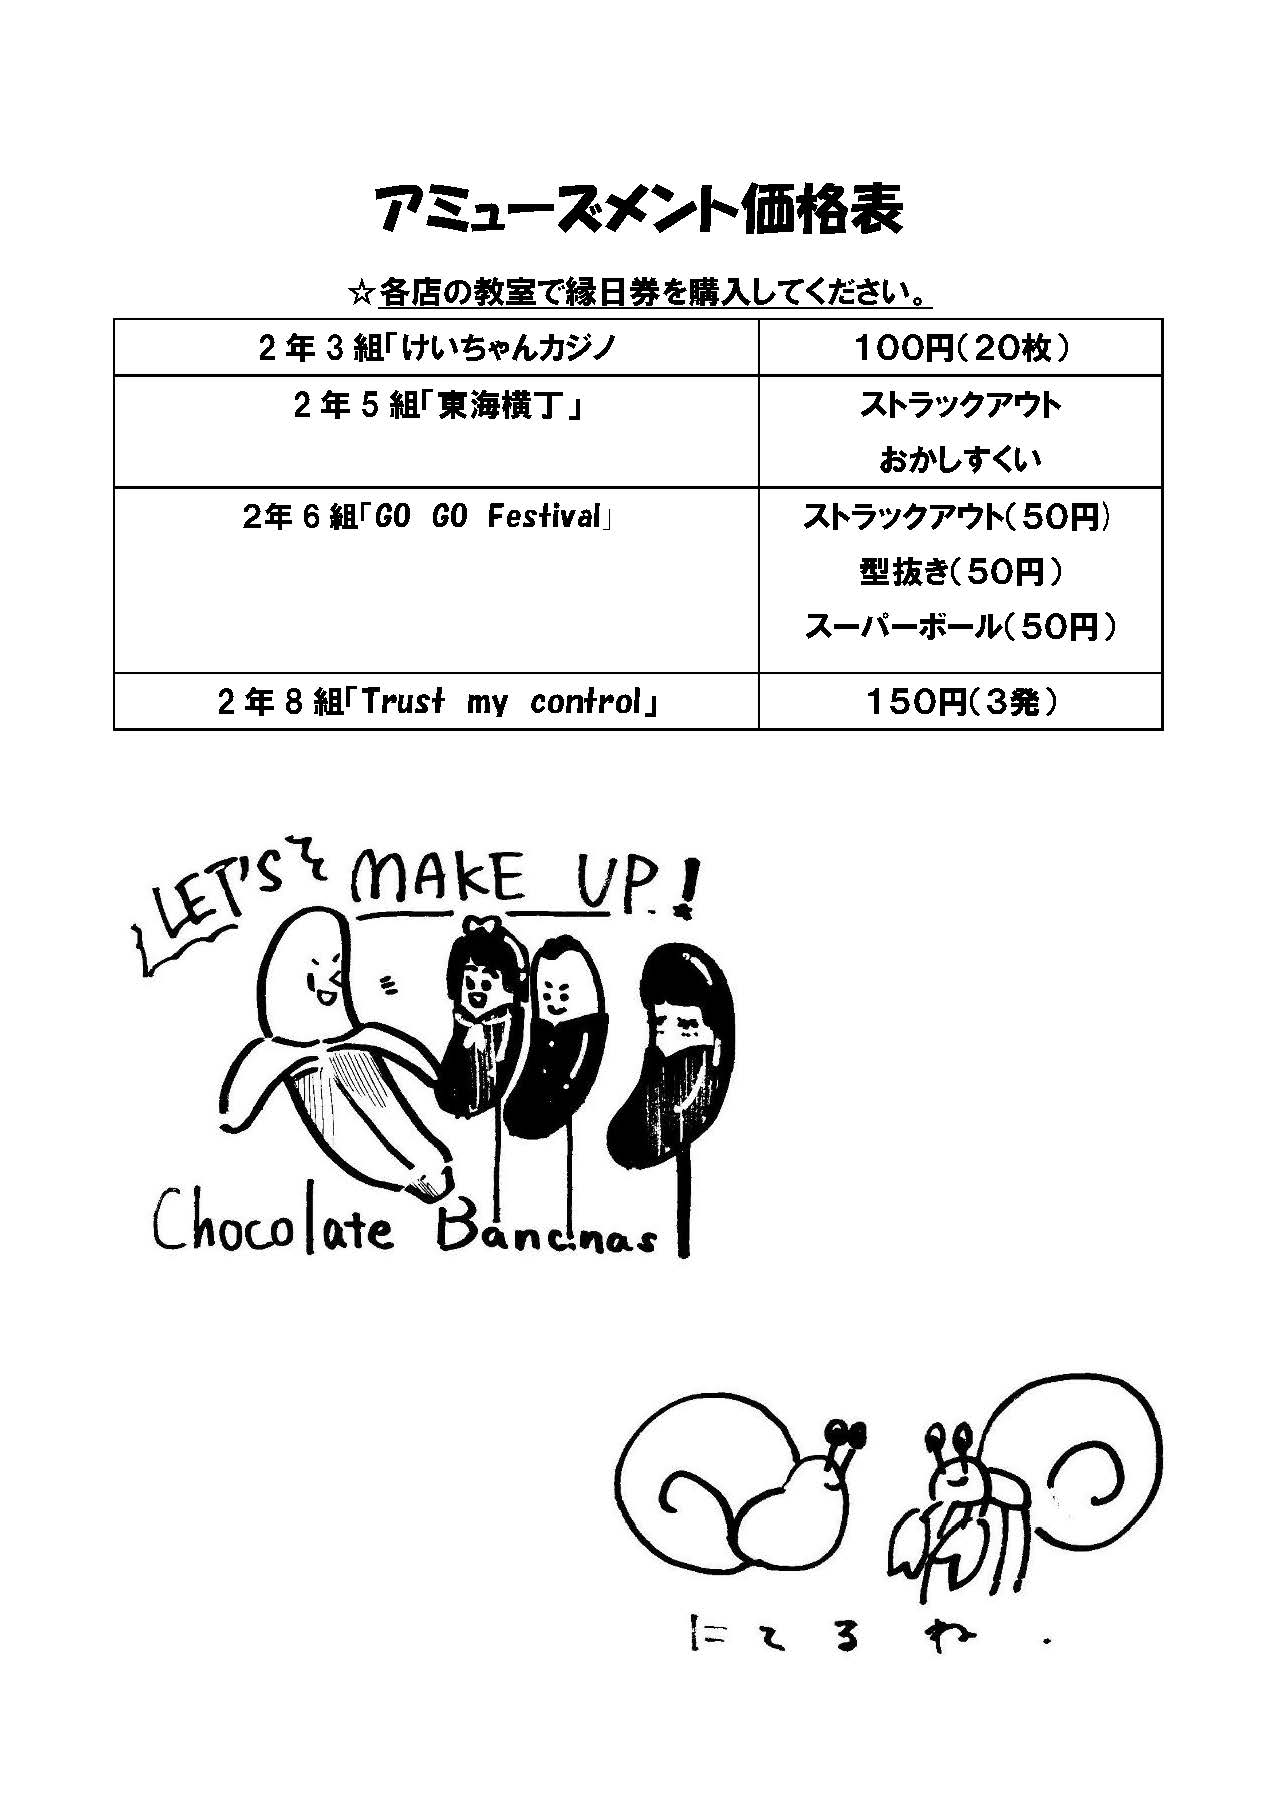 アミューズメント価格表
☆各店の教室で縁日券を購入してください。
2年3組「けいちゃんカジノ
100円(20枚)
2年5組「東海横丁」
ストラックアウト
おかしすくい
2年6組「GO GO Festival」
ストラックアウト(50円)
型抜き(50円)
スーパーボール(50円)
2年8組「Trust my control」
150円(3発)
LET'S MAKE UP!
Chocolate Bananas
にてるね.